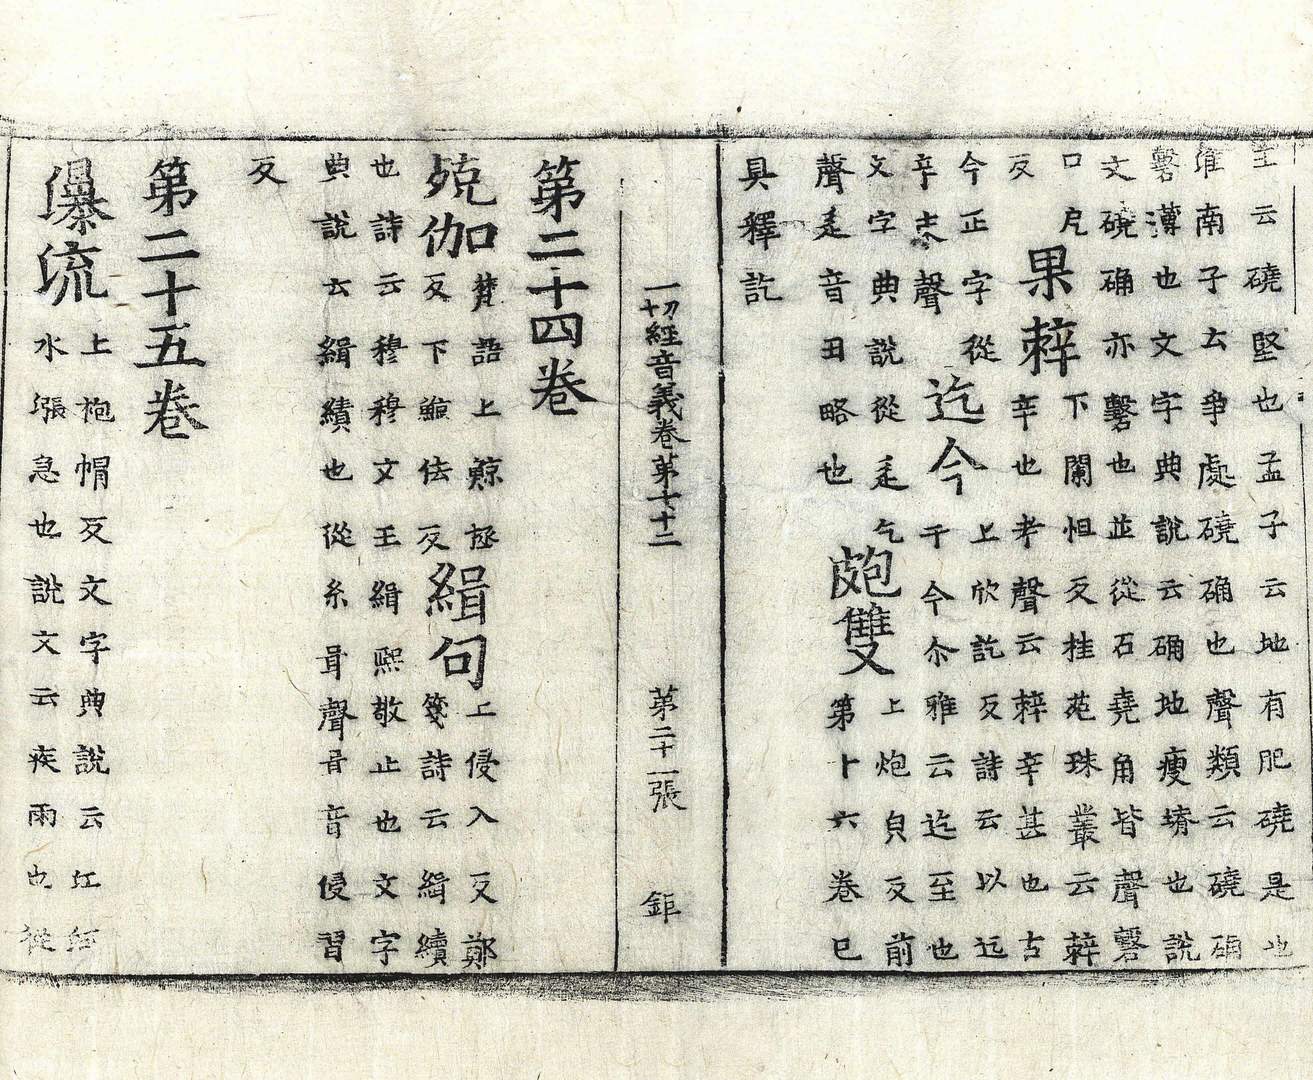 云磽堅也孟子云地有肥磽是也
淮南子云爭處磽确也聲類云磽确
礊薄也文字典說云确地瘦塉也說
文磽确亦礊也並從石堯角皆聲礊
口戹
反
果辢
下闌怛反桂苑珠叢云辢
辛也考聲云辢辛甚也古
今正字從
辛朿聲
迄今
上欣訖反詩云以迄
于今尒雅云迄至也
文字典說從辵乞
聲辵音丑略也
皰雙
上炮皃反前
第十六卷已
具釋訖
一切經音義卷第十二 第二十一張 鉅
第二十四卷
殑伽
梵語上鯨拯
反下佉反
緝句
上侵入反鄭
箋詩云緝續
也詩云穆穆文王緝熙敬止也文字
典說云緝績也從糸咠聲咠音侵習
反
第二十五卷
瀑流
上袍帽反文字典說云江
水漲急也說文云疾雨也從